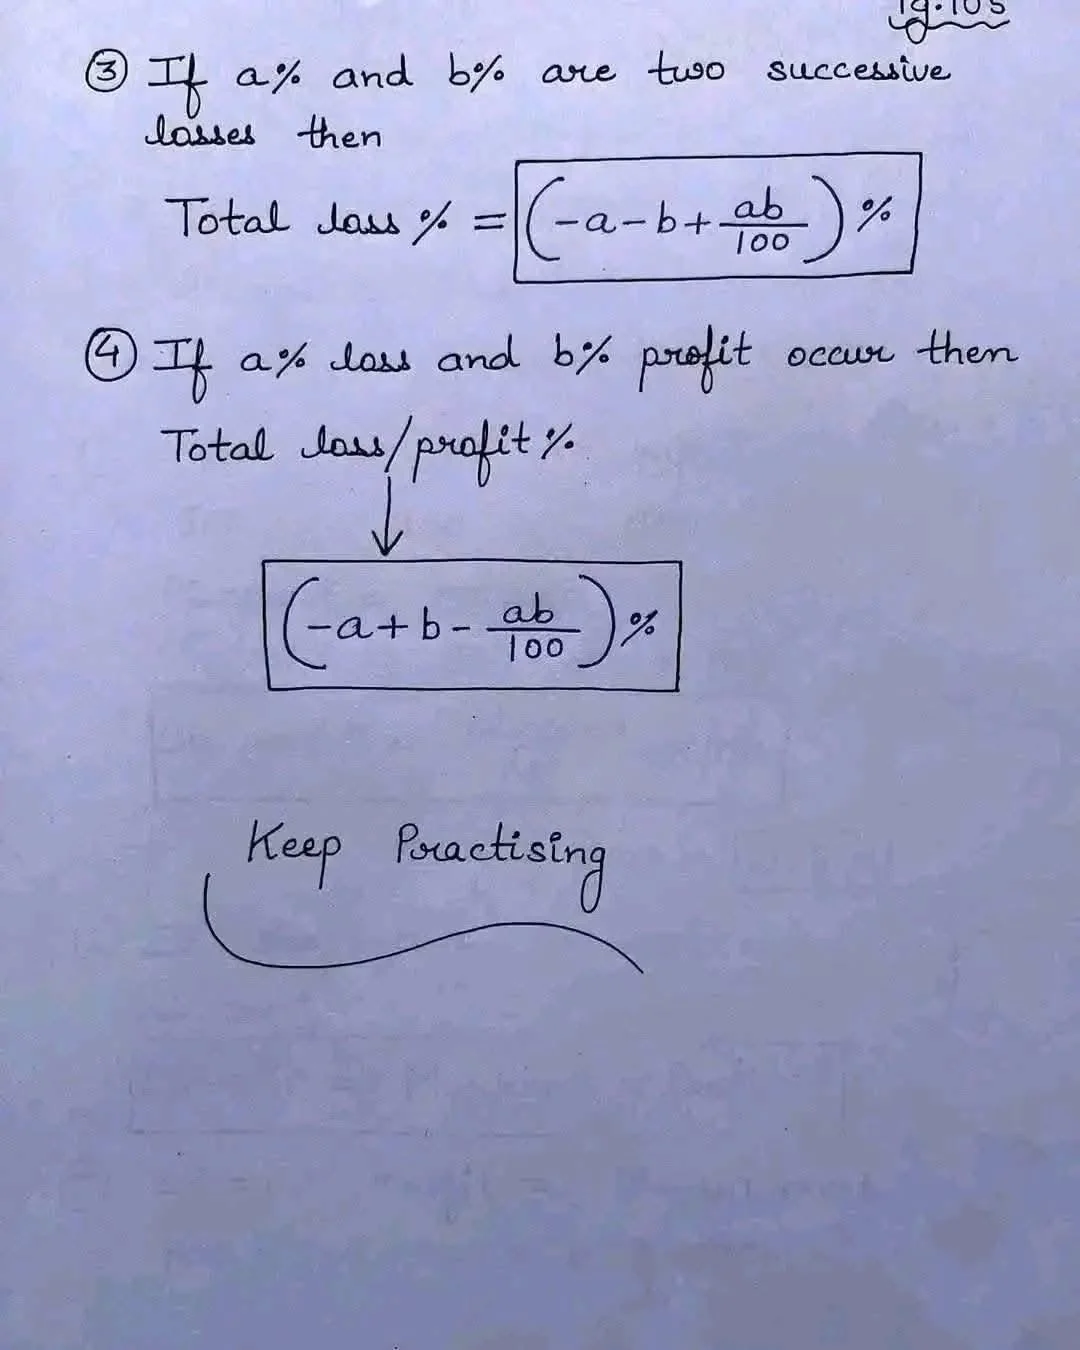 ③ If a% and b% are two successive
losses then
Total loss % = (-a-b+ab/100)%
④ If a% loss and b% profit occur then
Total loss/profit %
↓
(-a+b-ab/100)%
Keep Practising